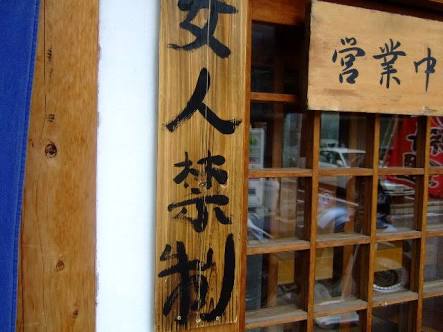 女人禁制
営業中